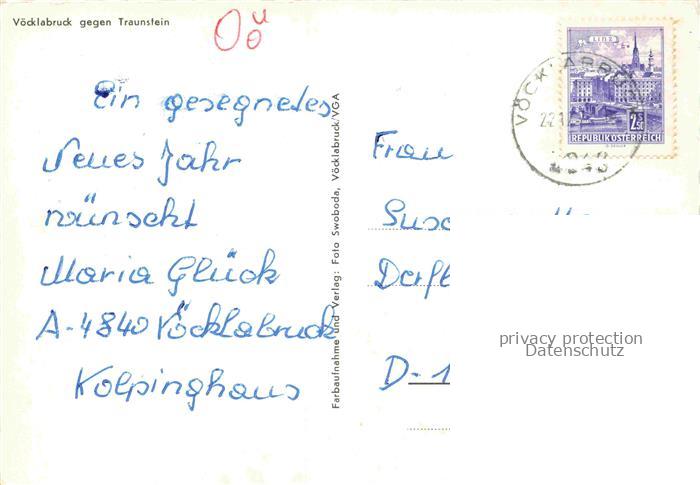 Vöcklabruck gegen Traunstein
OÖ
Ein gesegnetes
Neues Jahr
wünscht
Maria Glück
A-4840 Vöcklabruck
Kolpinghaus
Farbaufnahme und Verlag: Foto Swoboda, Vöcklabruck/VGA
LINZ
2.50
REPUBLIK ÖSTERREICH
VÖCKLABRUCK
Frau
D-1
privacy protection
Datenschutz